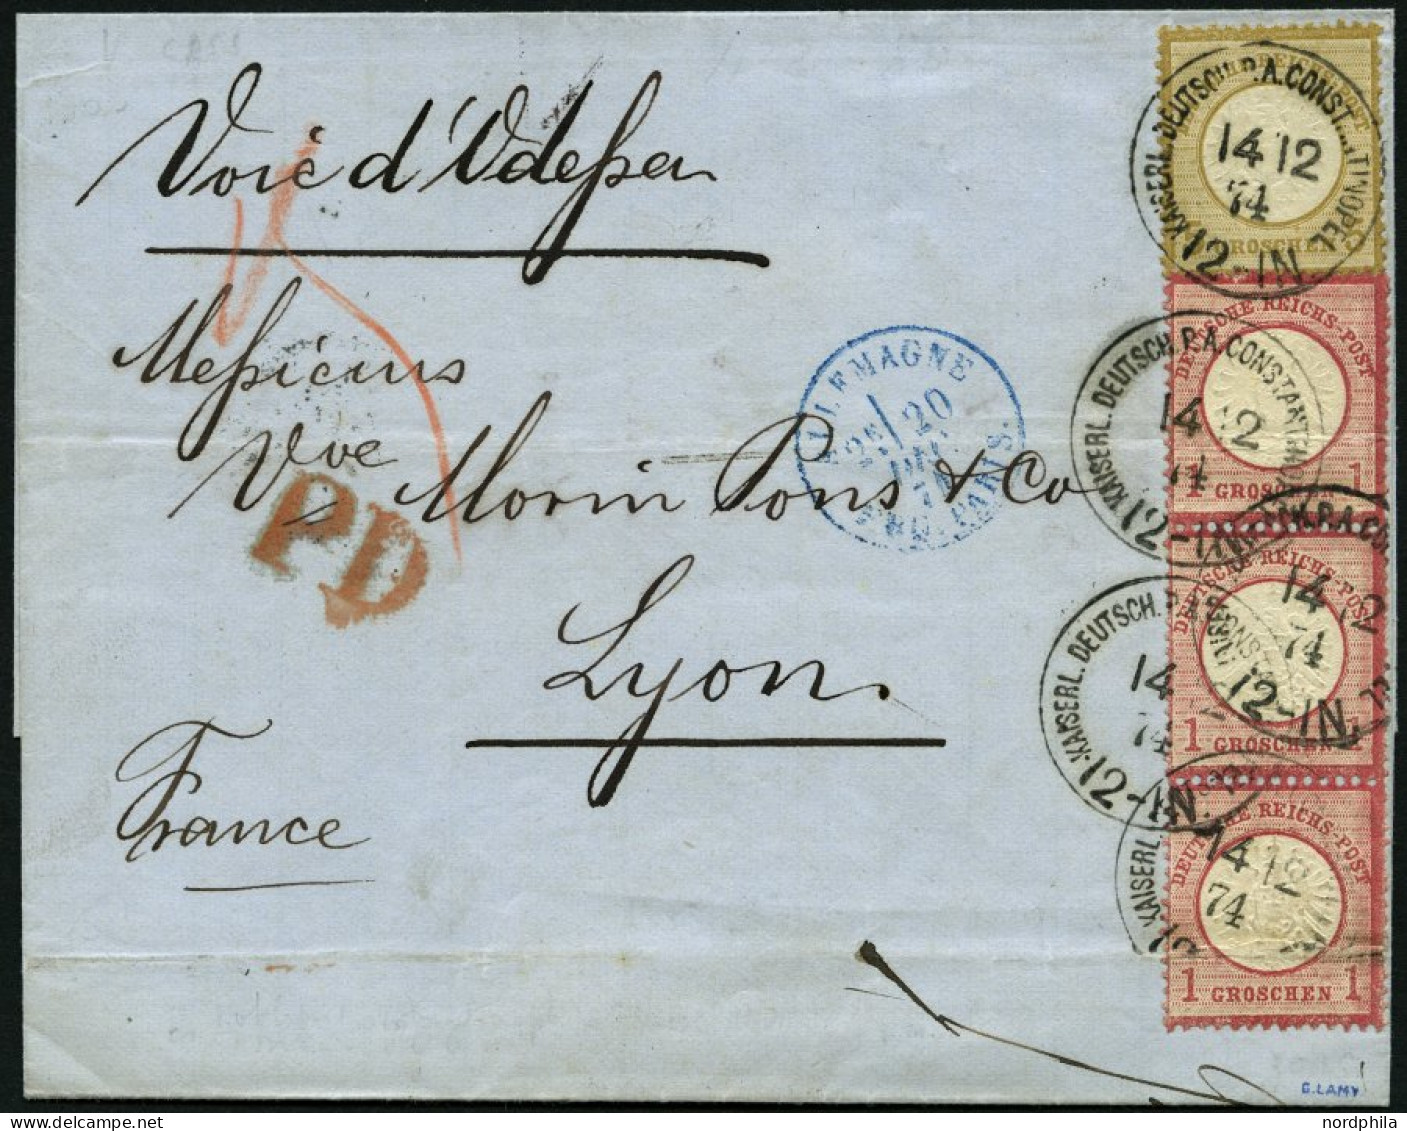 Voie d'Odessa
Messieurs
Vve Morin Pons & Co
Lyon.
France
PD
ALLEMAGNE
20
PARIS.
KAISERL. DEUTSCH. P.A. CONSTANTINOPEL
14 12
74
12-1N
GROSCHEN
KAISERL. DEUTSCH. P.A. CONSTANTINOPEL
14 12
74
12-1N
DEUTSCHE REICHS-POST
1 GROSCHEN 1
14 12
74
12-1N.
DEUTSCHE REICHS-POST
1 GROSCHEN 1
KAISERL. DEUTSCH. P.A. CONST
14
74
12-1N.
KAISERL.
14 12
74
DEUTSCHE REICHS-POST
1 GROSCHEN 1
G.LAMY
nordphila